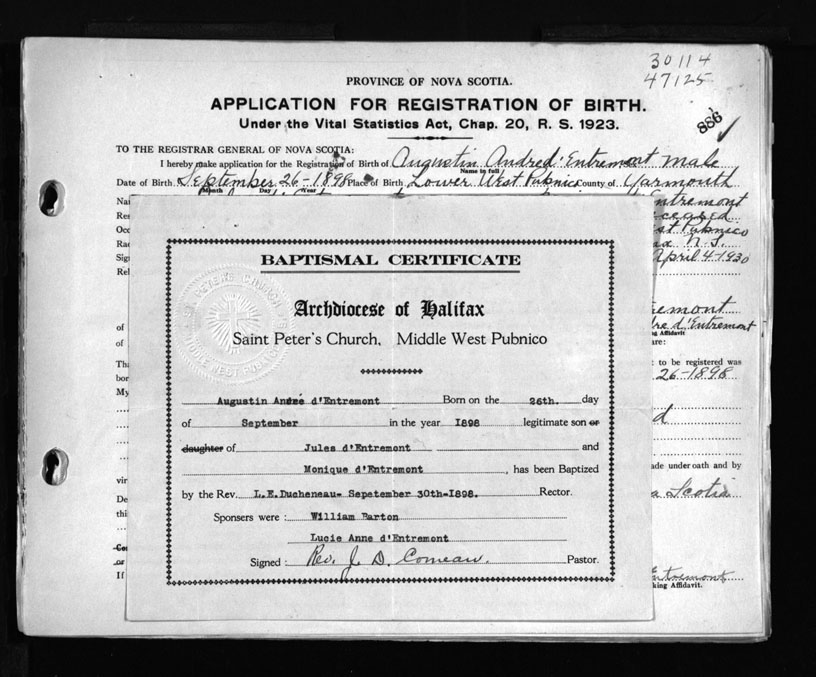 30114
47125
886
PROVINCE OF NOVA SCOTIA.
APPLICATION FOR REGISTRATION OF BIRTH.
Under the Vital Statistics Act, Chap. 20, R. S. 1923.
TO THE REGISTRAR GENERAL OF NOVA SCOTIA:
I hereby make application for the Registration of Birth of Augustin Andre d'Entremont male
Name in full
Date of Birth September 26-1898 Place of Birth Lower West Pubnico County of Yarmouth
Month Day Year
Na
Res
Occ
Rac
Sig
Rel
ntremont
eceased
st Pubnico
N.S.
April 4-1930
emont
re d'Entremont
ing Affidavit
are:
of
of
Tha
bor
My
to be registered was
26-1898
d
ade under oath and by
a Scotia
vir
De
thi
If
Entremont
king Affidavit.
BAPTISMAL CERTIFICATE
Archdiocese of Halifax
Saint Peter's Church, Middle West Pubnico
ST. PETER'S CHURCH
MIDDLE WEST PUBNICO
Augustin André d'Entremont Born on the 26th. day
of September in the year I898 legitimate son or
daughter of Jules d'Entremont and
Monique d'Entremont, has been Baptized
by the Rev. L.E.Ducheneau- Sepetember 30th-I898. Rector.
Sponsers were : William Barton
Lucie Anne d'Entremont
Signed : Rev. J. D. Comeau. Pastor.